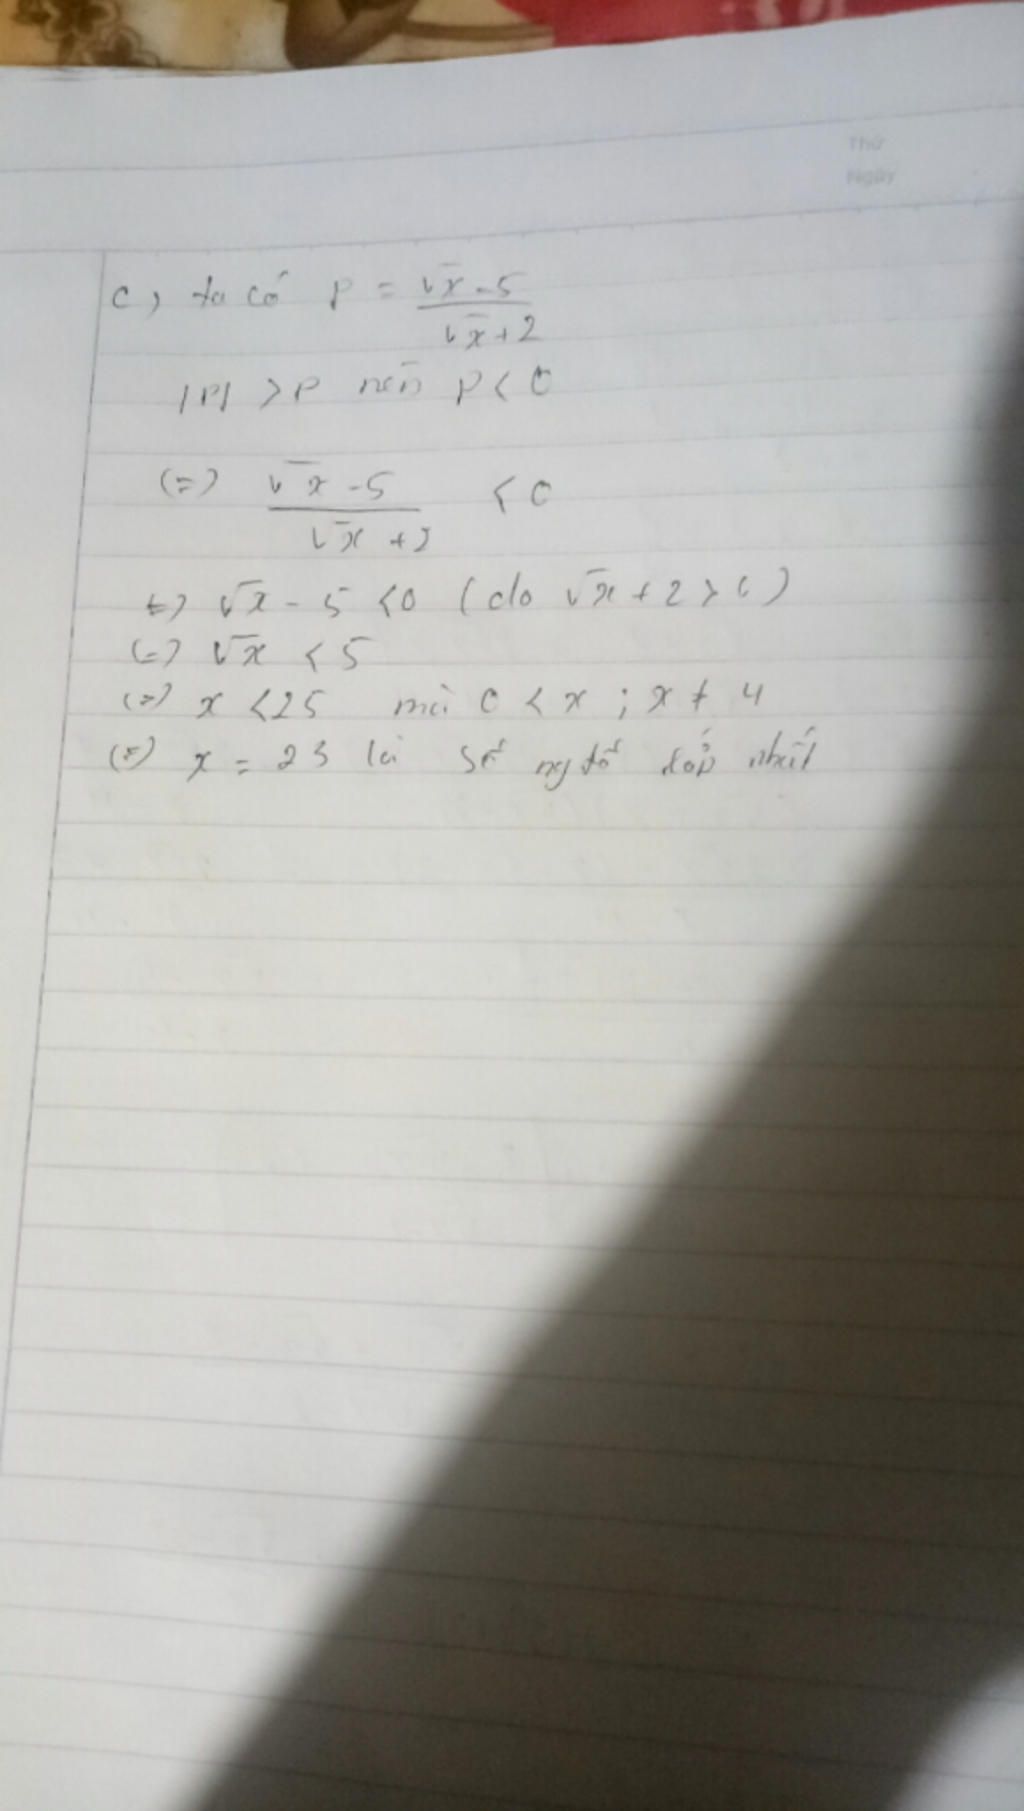 Thứ
Ngày
c, ta có P = \frac{\sqrt{x}-5}{\sqrt{x}+2}
|P| > P nên P < 0
(=) \frac{\sqrt{x}-5}{\sqrt{x}+2} < 0
(=) \sqrt{x} - 5 < 0 (do \sqrt{x} + 2 > 0)
(=) \sqrt{x} < 5
(=) x < 25 mà 0 < x ; x ≠ 4
(=) x = 23 là số ng tố nhất